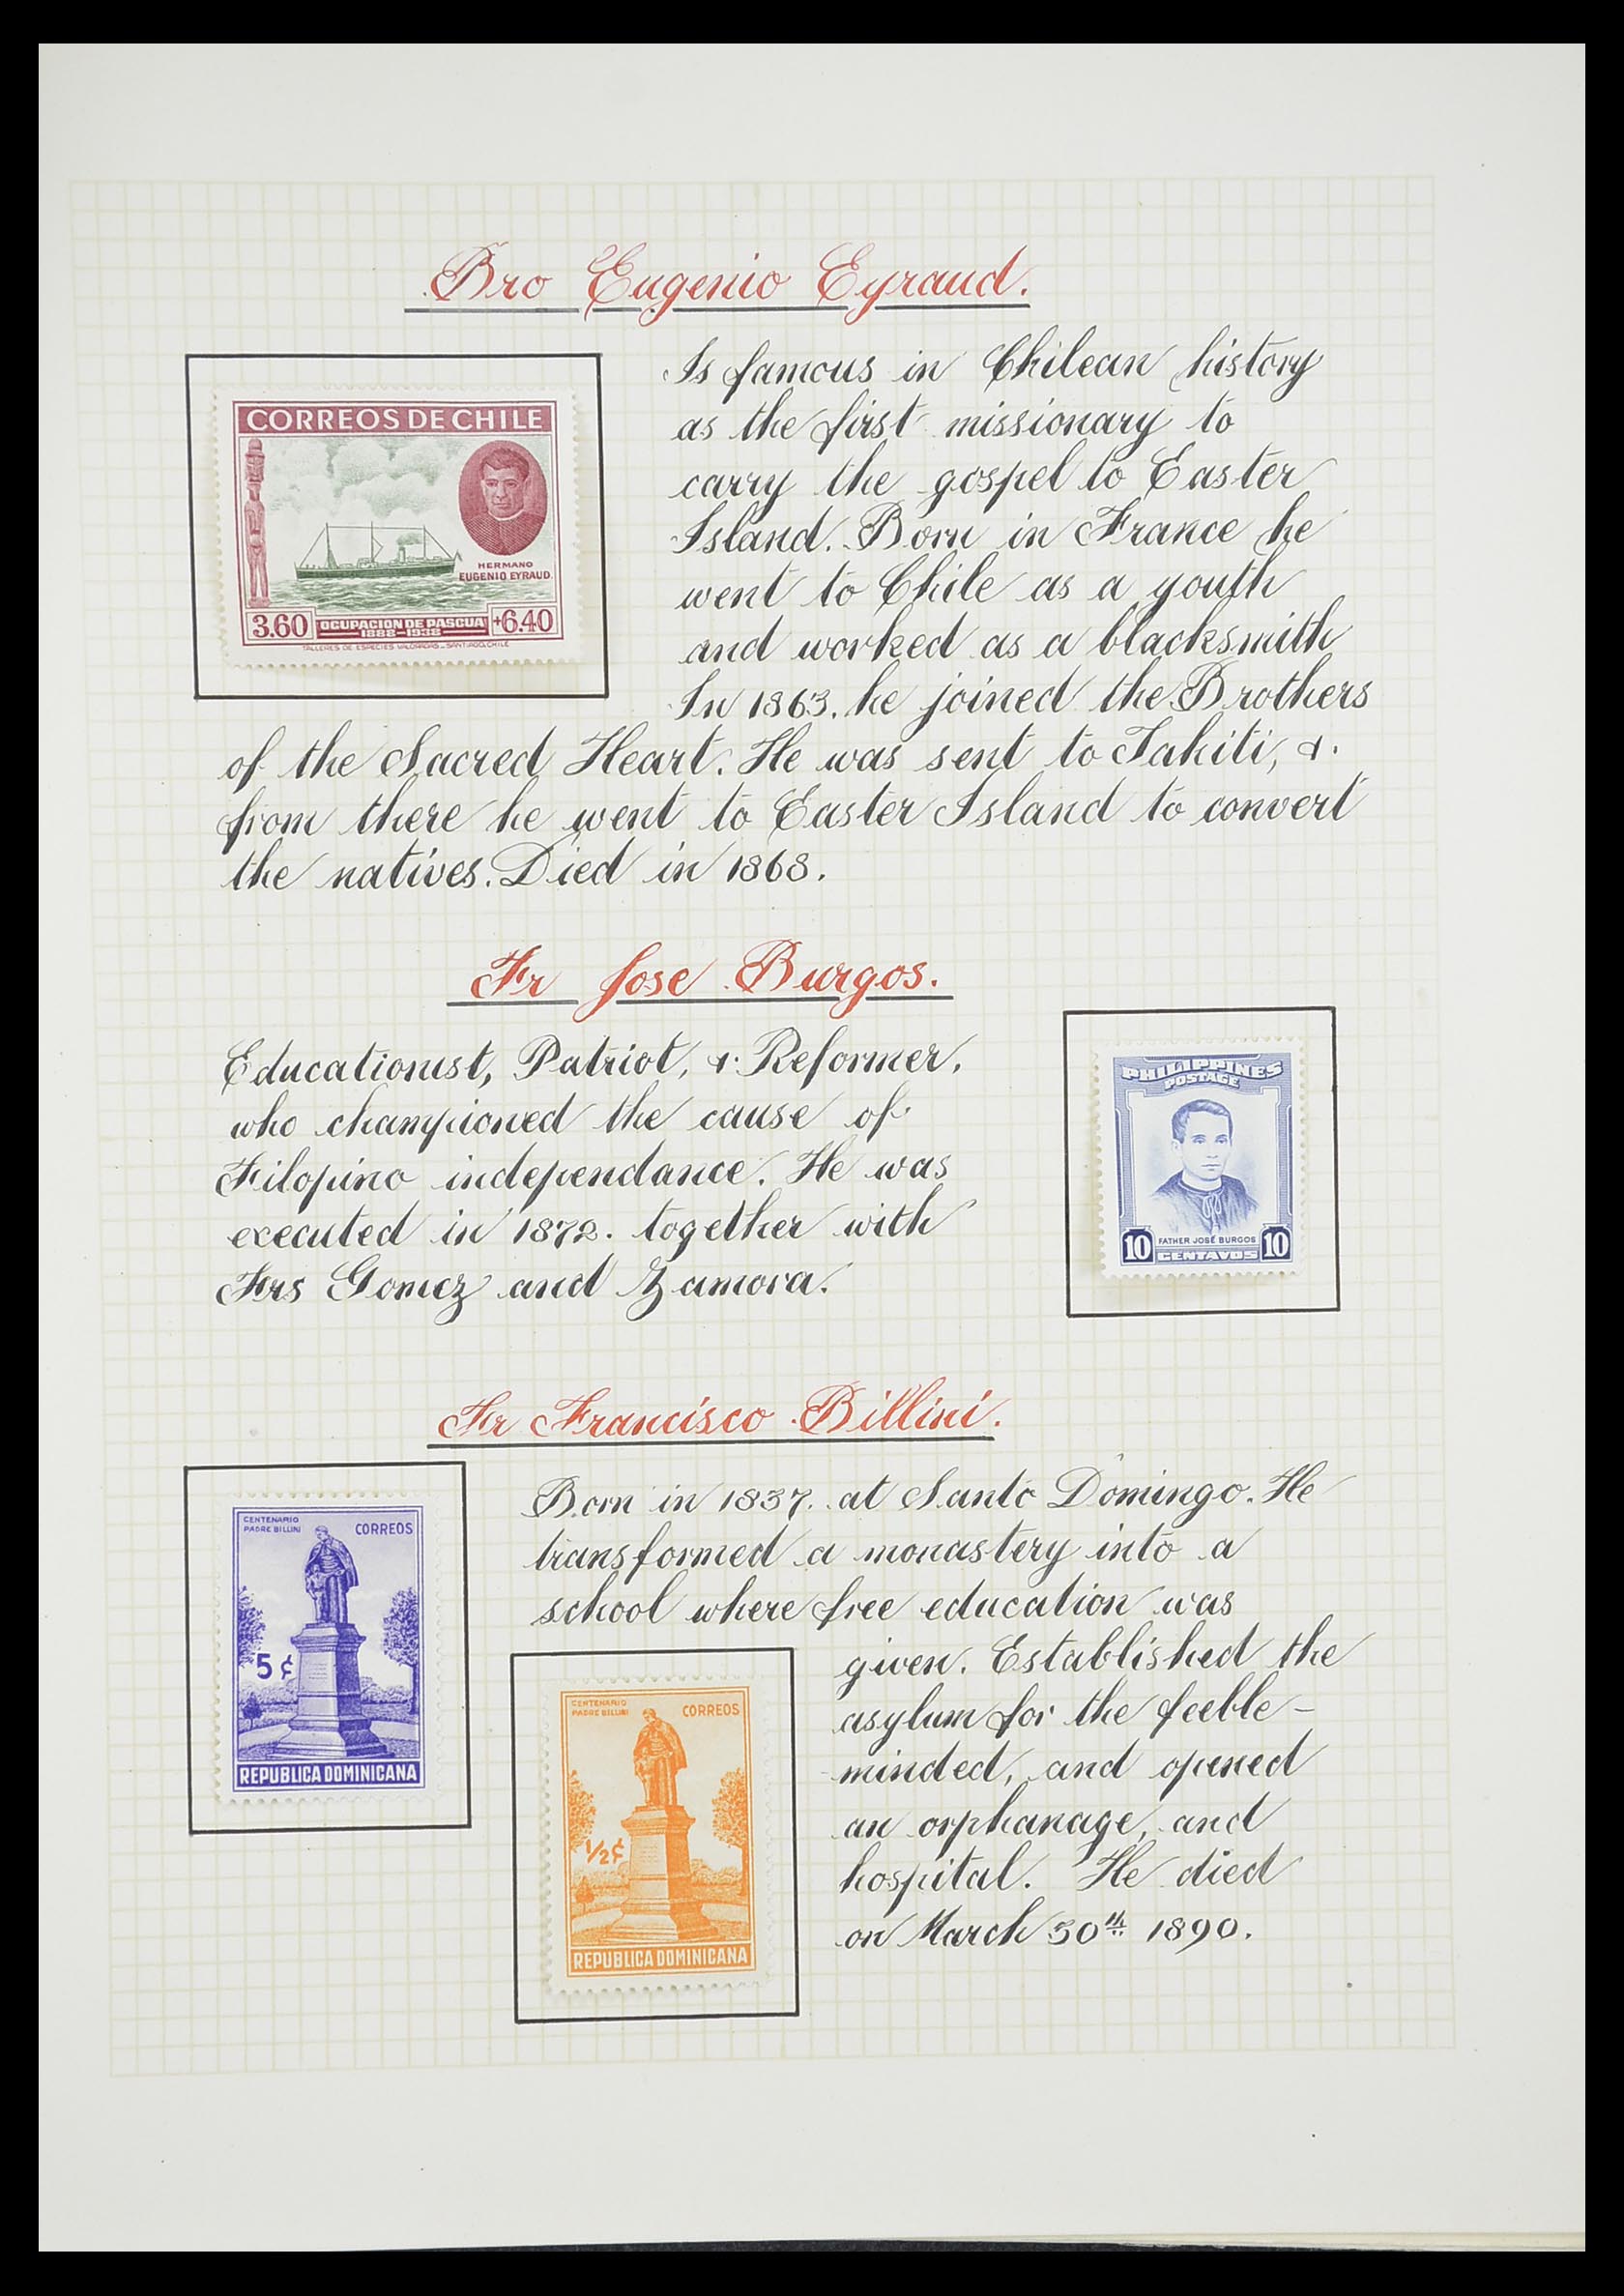 Bro Eugenio Eyraud.
CORREOS DE CHILE
HERMANO
EUGENIO EYRAUD.
3.60 OCUPACION DE PASCUA +6.40
1888-1938
TALLERES DE ESPECIES VALORADAS - SANTIAGO, CHILE
Is famous in Chilean history
as the first missionary to
carry the gospel to Easter
Island. Born in France he
went to Chile as a youth
and worked as a blacksmith
In 1863. he joined the Brothers
of the Sacred Heart. He was sent to Tahiti, &
from there he went to Easter Island to convert
the natives. Died in 1868.
Fr Jose Burgos.
Educationist, Patriot, & Reformer,
who championed the cause of
Filopino independance. He was
executed in 1872. together with
Frs Gomez and Zamora.
PHILIPPINES
POSTAGE
FATHER JOSÉ BURGOS
10 CENTAVOS 10
Fr Francisco Billini.
CENTENARIO
PADRE BILLINI CORREOS
5¢
REPUBLICA DOMINICANA
Born in 1837. at Santo Domingo. He
transformed a monastery into a
school where free education was
given. Established the
asylum for the feeble-
minded, and opened
an orphanage, and
hospital. He died
on March 30th 1890.
CENTENARIO
PADRE BILLINI CORREOS
1/2¢
REPUBLICA DOMINICANA